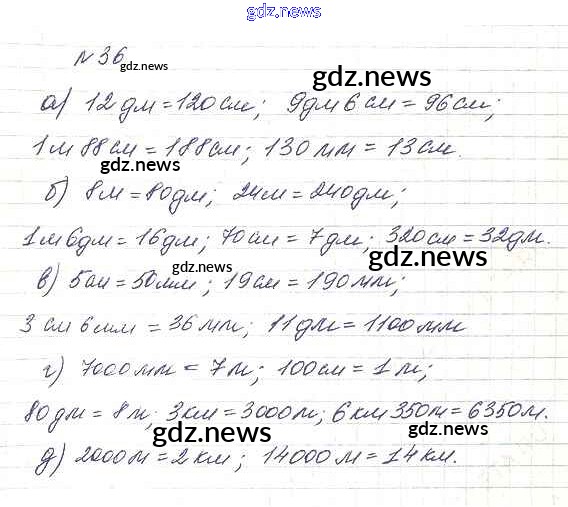 gdz.name
№36
gdz.name
gdz.name
а) 12 дм = 120 см; 9дм 6 см = 96 см;
gdz.name
1 м 88 см = 188 см; 130 мм = 13 см.
gdz.name
б) 8 м = 80 дм; 24 м = 240 дм;
gdz.name
1 м 6 дм = 16 дм; 70 см = 7 дм; 320 см = 32 дм.
gdz.name
gdz.name
в) 5 см = 50 мм; 19 см = 190 мм;
gdz.name
3 см 6 мм = 36 мм; 11 дм = 1100 мм
г) 7000 мм = 7 м; 100 см = 1 м;
80 дм = 8 м; 3 км = 3000 м; 6 км 350 м = 6350 м.
gdz.name
gdz.name
д) 2000 м = 2 км; 14000 м = 14 км.